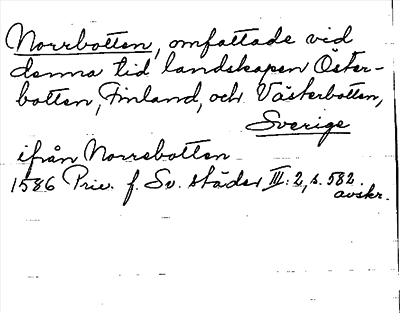 Norrbotten, omfattade vid
denna tid landskapen Öster-
botten, Finland, och Västerbotten,
Sverige
ifrån Norrebotten
1586 Priv. f. Sv. städer III:2, s. 582.
avskr.